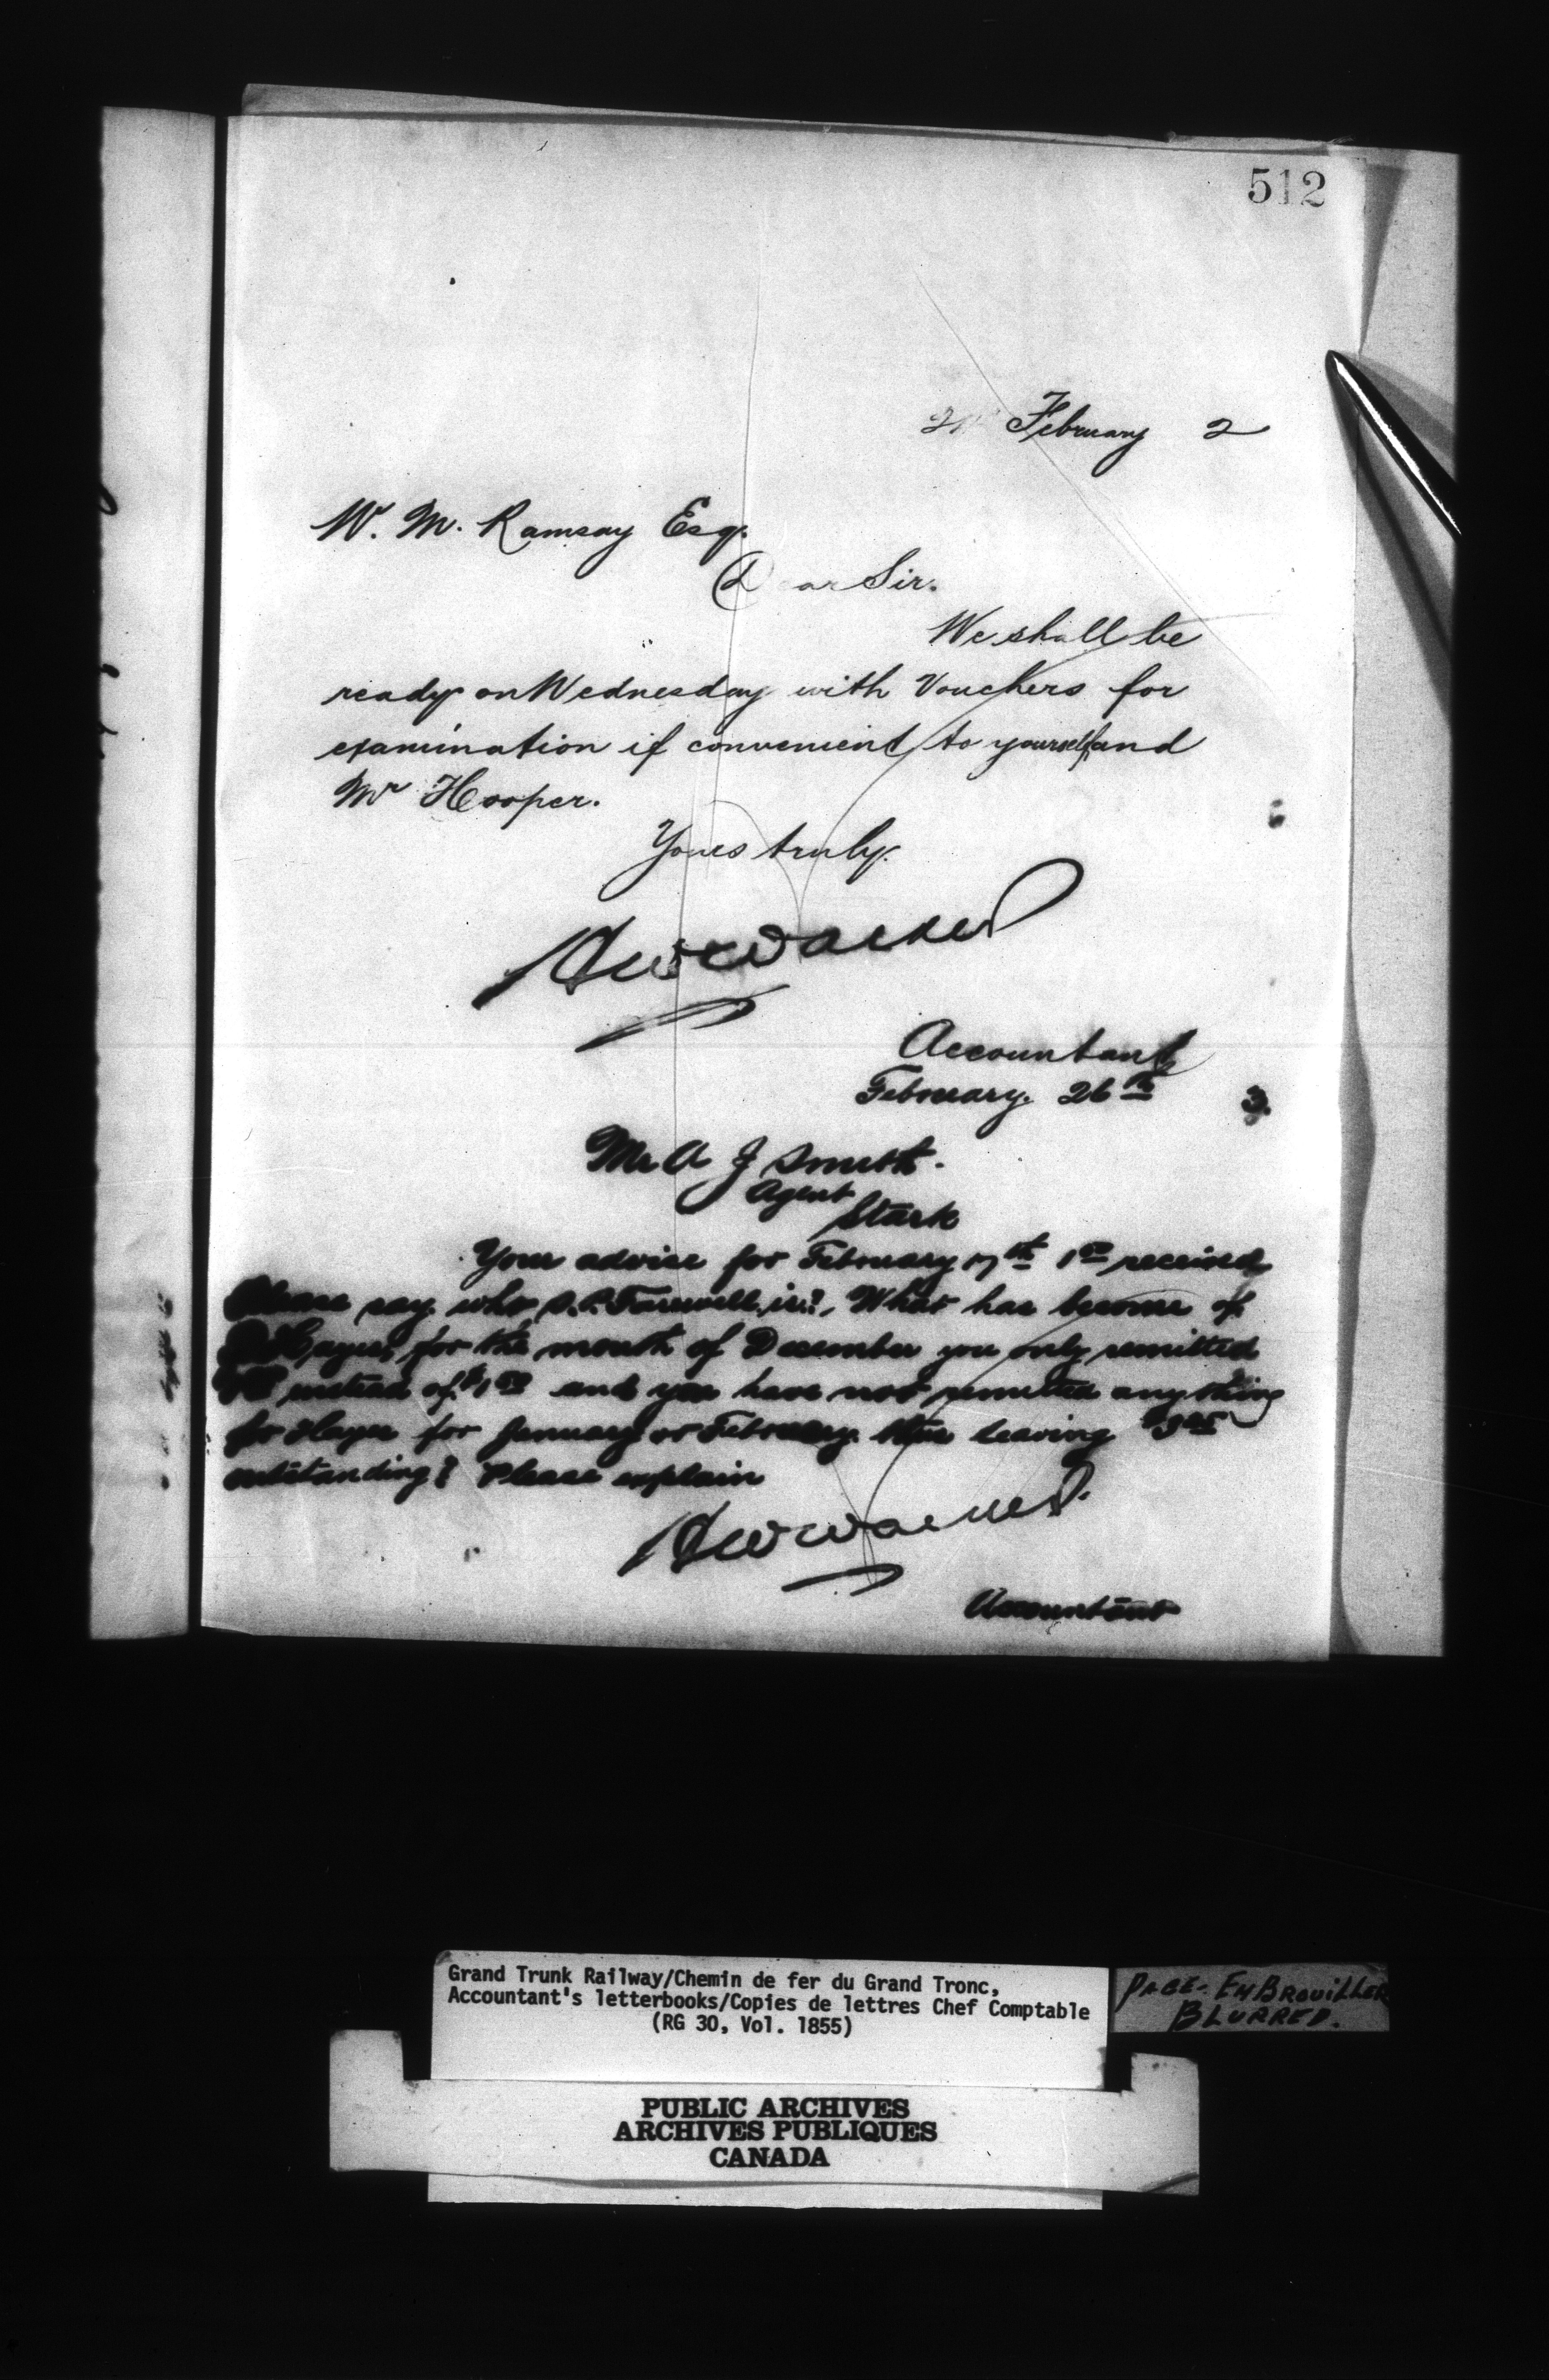 512
February 2
W. M. Ramsay Esq.
Dear Sir.
We shall be
ready on Wednesday with Vouchers for
examination if convenient to yourself and
Mr Hooper.
Yours truly.
Accountant
February. 26th 3.
Mr A J Smith.
Agent
Stark
Your advice for February 17th received
Please say who Farewell is?, What has become of
Hayes, for the month of December you only remitted
instead of and you have not remitted any thing
for Hayes for January or February. thus leaving
outstanding? Please explain
Accountant
Grand Trunk Railway/Chemin de fer du Grand Tronc,
Accountant's letterbooks/Copies de lettres Chef Comptable
(RG 30, Vol. 1855)
PAGE- EMBROUILLER
BLURRED.
PUBLIC ARCHIVES
ARCHIVES PUBLIQUES
CANADA